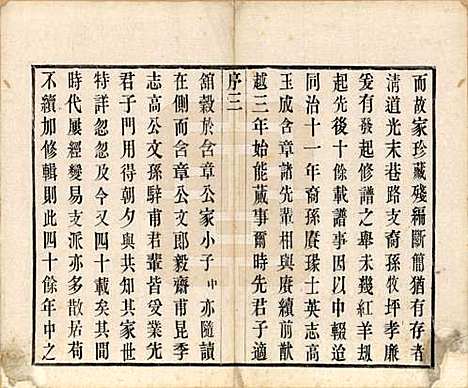 而故家珍藏殘編斷簡猶有存者
清道光末巷路支裔孫牧坪孝廉
爰有發起修譜之舉未幾紅羊刼
起先後十餘載譜事因以中輟迨
同治十一年裔孫賡瑔士英志高
玉成含章諸先輩相與賡續前猷
越三年始能蕆事爾時先君子適
序三
舘穀於含章公家小子中亦隨讀
在側而含章公文郎毅齋甫昆季
志高公文孫騂甫君輩皆受業先
君子門用得朝夕與共知其家世
特詳忽忽至今又四十載矣其間
時代屢經變易支派亦多散居苟
不續加修輯則此四十餘年中之